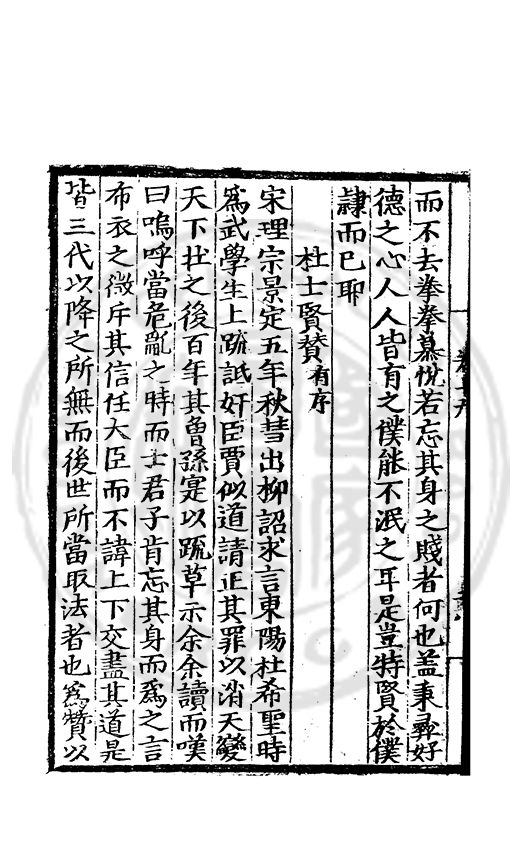 而不去拳拳慕悅若忘其身之賤者何也盖秉彛好
德之心人人皆有之僕能不泯之耳是豈特賢於僕
隷而已耶
杜士賢賛有序
宋理宗景定五年秋彗出柳詔求言東陽杜希聖時
爲武學生上䟽詆奸臣賈似道請正其罪以消天變
天下壯之後百年其曾孫寔以䟽草示余余讀而嘆
曰嗚呼當危亂之時而士君子肯忘其身而爲之言
布衣之微斥其信任大臣而不諱上下交盡其道是
皆三代以降之所無而後世所當取法者也爲贊以